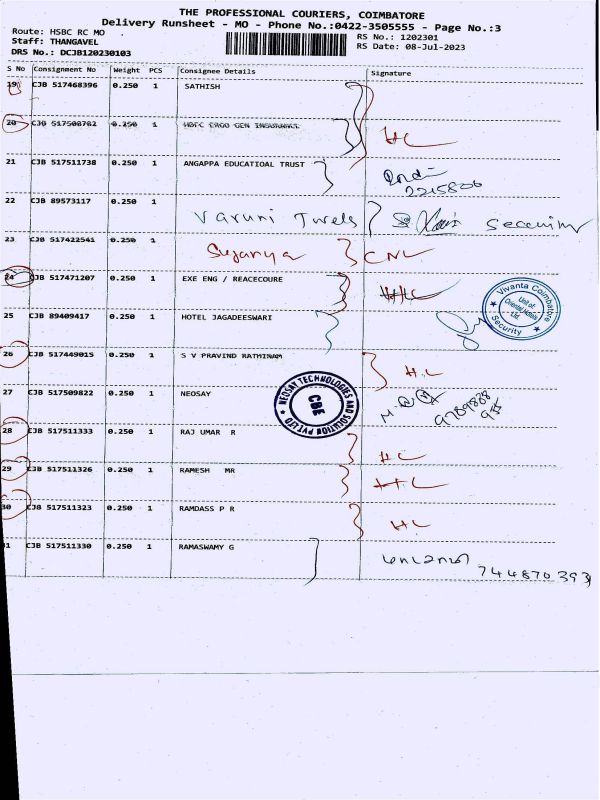 THE PROFESSIONAL COURIERS, COIMBATORE
Delivery Runsheet - MO - Phone No.:0422-3505555 - Page No.:3
Route: HSBC RC MO RS No.: 1202301
Staff: THANGAVEL RS Date: 08-Jul-2023
DRS No.: DCJB120230103
S No Consignment No Weight PCS Consignee Details Signature
19 CJB 517468396 0.250 1 SATHISH
20 CJB 517508782 0.250 1 HDFC ERGO GEN INSURANKS HC
21 CJB 517511738 0.250 1 ANGAPPA EDUCATIOAL TRUST
2215806
22 CJB 89573117 0.250 1 Varuni Security
23 CJB 517422541 0.250 1 Sujanya CNL
24 CJB 517471207 0.250 1 EXE ENG / REACECOURE HC
Vivanta Coimbatore
Unit of Oriental Hotels Ltd.
Security
25 CJB 89409417 0.250 1 HOTEL JAGADEESWARI
26 CJB 517449015 0.250 1 S V PRAVIND RATHINAM H.C
NEOSAY TECHNOLOGIES AND SOLUTION PVT LTD
CBE
27 CJB 517509822 0.250 1 NEOSAY
28 CJB 517511333 0.250 1 RAJ UMAR R HC
29 CJB 517511326 0.250 1 RAMESH MR HC
30 CJB 517511323 0.250 1 RAMDASS P R HC
31 CJB 517511330 0.250 1 RAMASWAMY G
744870393